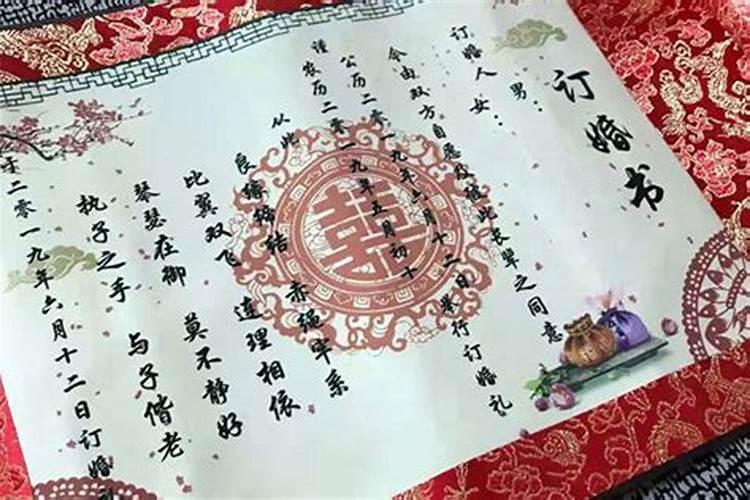 订婚书
男:
订婚人 女:
今由双方自愿及 彼此长辈之同意
公历二零一九年六月十二日举行订婚礼
谨农历二零一九年五月初十
从此
良缘缔结 赤绳牢系
比翼双飞 连理相依
琴瑟在御 莫不静好
执子之手 与子偕老
于二零一九年六月十二日订婚